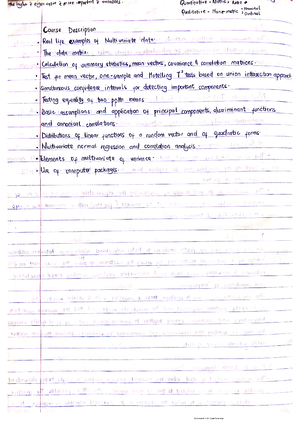 the higher eigen value more important variables
Quantitative - Metric - Ratio
Qualitative - Non-metric - Nominal
Ordinal
Course Description
Real life examples of Multivariate data.
The data matrix.
Calculation of summary statistics, mean vectors, covariance & correlation matrices.
Test for mean vector, one-sample and Hotelling T² tests based on union intersection approach
Simultaneous confidence intervals for detecting important components.
Testing equality of two popltn means
Basic assumptions and application of principal components, discriminant functions
and canonical correlations.
Distributions of linear functions of a random vector and of quadratic forms
Multivariate normal regression and correlation analysis.
Elements of multivariate of variance.
Use of computer packages.